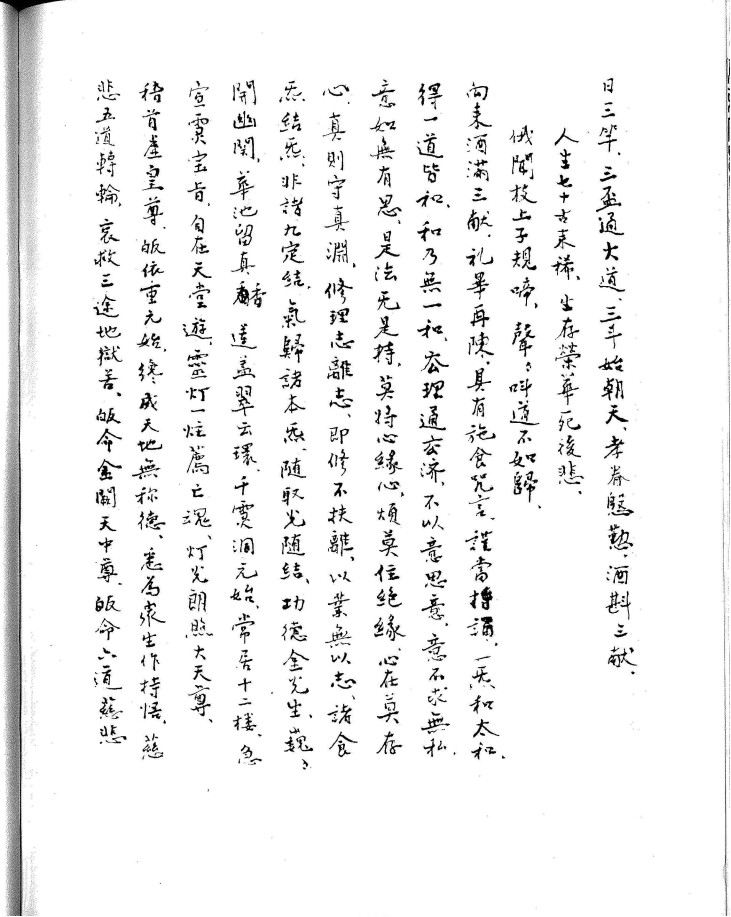 日三毕、三盃通大道、三斗始朝天、孝眷慇懃、酒斟三献、
人生七十古来稀、生存榮華死後悲、
俄聞枝上子規啼、聲〻呌道不如歸、
向来酒滿三献、礼畢再陳、具有施食咒言、謹當持誦、一炁和太和、
得一道皆和、和乃無一和、玄理通玄济、不以意思意、意不求無私、
意如無有思、是法无是持、莫将心緣心、煩莫住絶緣、心在莫存
心、真則守真淵、修理志離志、即修不扶離、以業無以志、諸食
炁結炁、非諸九定結、氣歸諸本炁、随取光随結、功德金光生、巍〻
開幽関、華池留真香 蓮盖翠云環、千霊洞元始、常居十二楼、急
宣霊宝旨、自在天堂遊、霊灯一炷薦亡魂、灯光朗照大天尊、
稽首虚皇尊、皈依重元始、終成天地無称德、悉為衆生作持悟、慈
悲五道轉輪、哀救三途地獄苦、皈命金闕天中尊、皈命六道慈悲